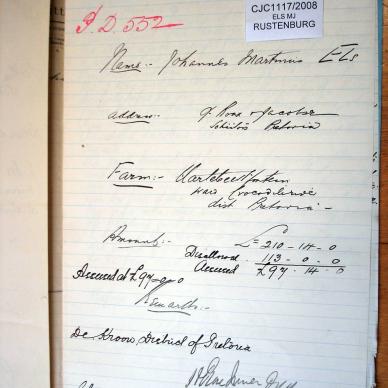 CJC1117/2008
ELS MJ
RUSTENBURG
P.D. 552
Name:- Johannes Martinus Els
Address:- Jacobsz
Pretoria
Farm:- Hartebeestfontein
Ward Crocodile
dist Pretoria -
Amount:- £ 210 - 14 - 0
Disallowed 113 - 0 - 0
Assessed £97 - 14 - 0
Assessed at £97
Remarks:-
De Kroon, District of Pretoria